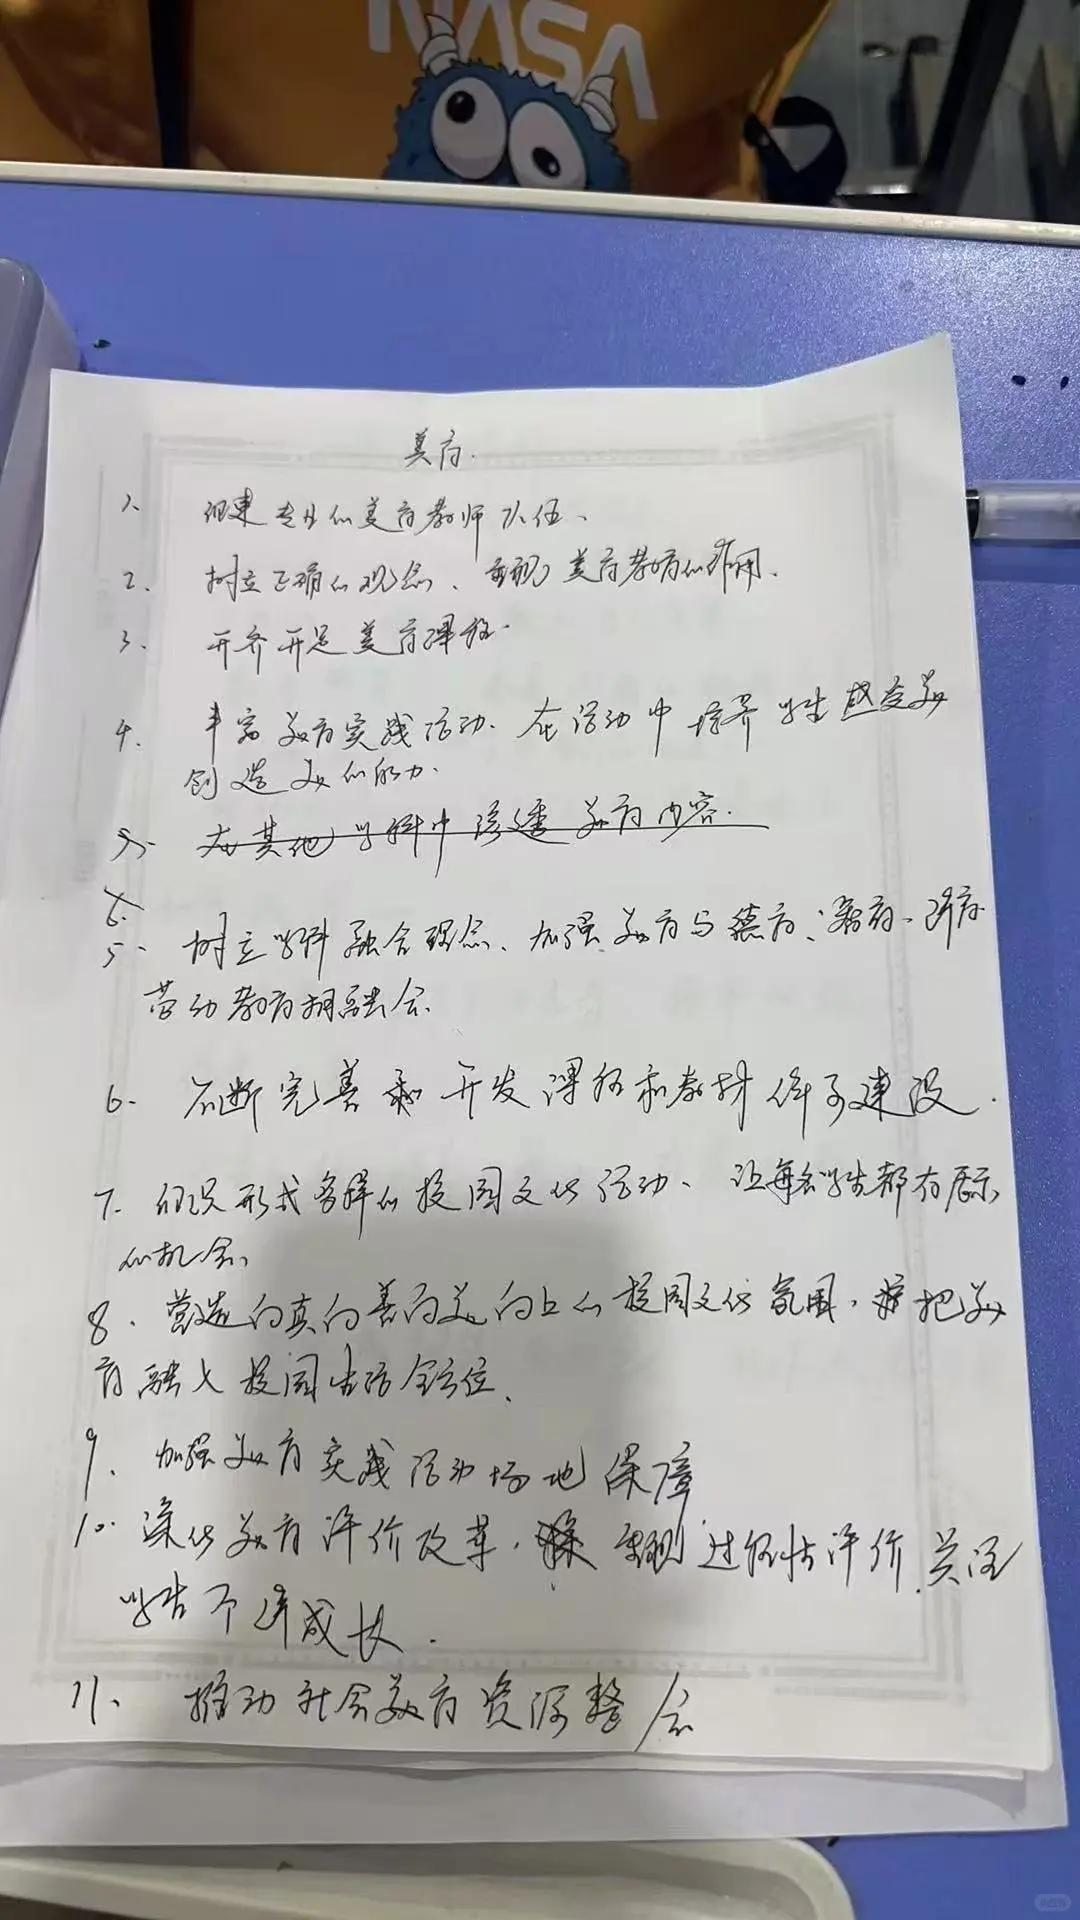 NASA
美育.
1、 组建专业的美育教师队伍、
2、 树立正确的观念、重视美育教育的作用.
3、 开齐开足美育课程.
4. 丰富美育实践活动. 在活动中培养学生感受美
创造美的能力.
5. 在其他学科中渗透美育内容.
6.
5. 树立学科融合理念、加强美育与德育、智育、体育
劳动教育相融合.
6. 不断完善和开发课程和教材体系建设.
7. 组织形式多样的校园文化活动、让每名学生都有展示
的机会、
8. 营造向真向善向美向上的校园文化氛围, 把美
育融入校园生活全方位.
9. 加强美育实践活动场地保障
10. 深化美育评价改革, 重视过程性评价. 关注
学生个体成长.
11、 推动社会美育资源整合